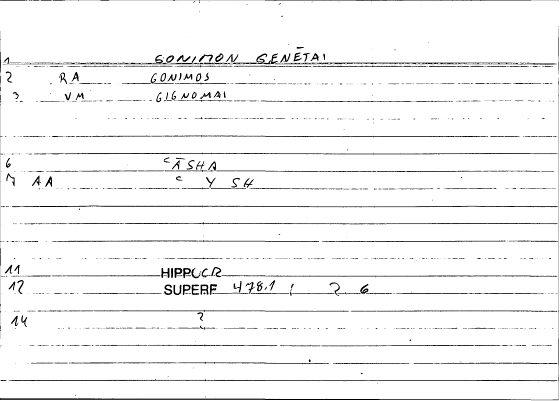 1 GONIMON GENĒTAI
2 RA GONIMOS
3 VM GIGNOMAI
6 cĀSHA
7 AA c Y SH
11 HIPPOCR
12 SUPERF 478.1 ; 2 6
14 ?